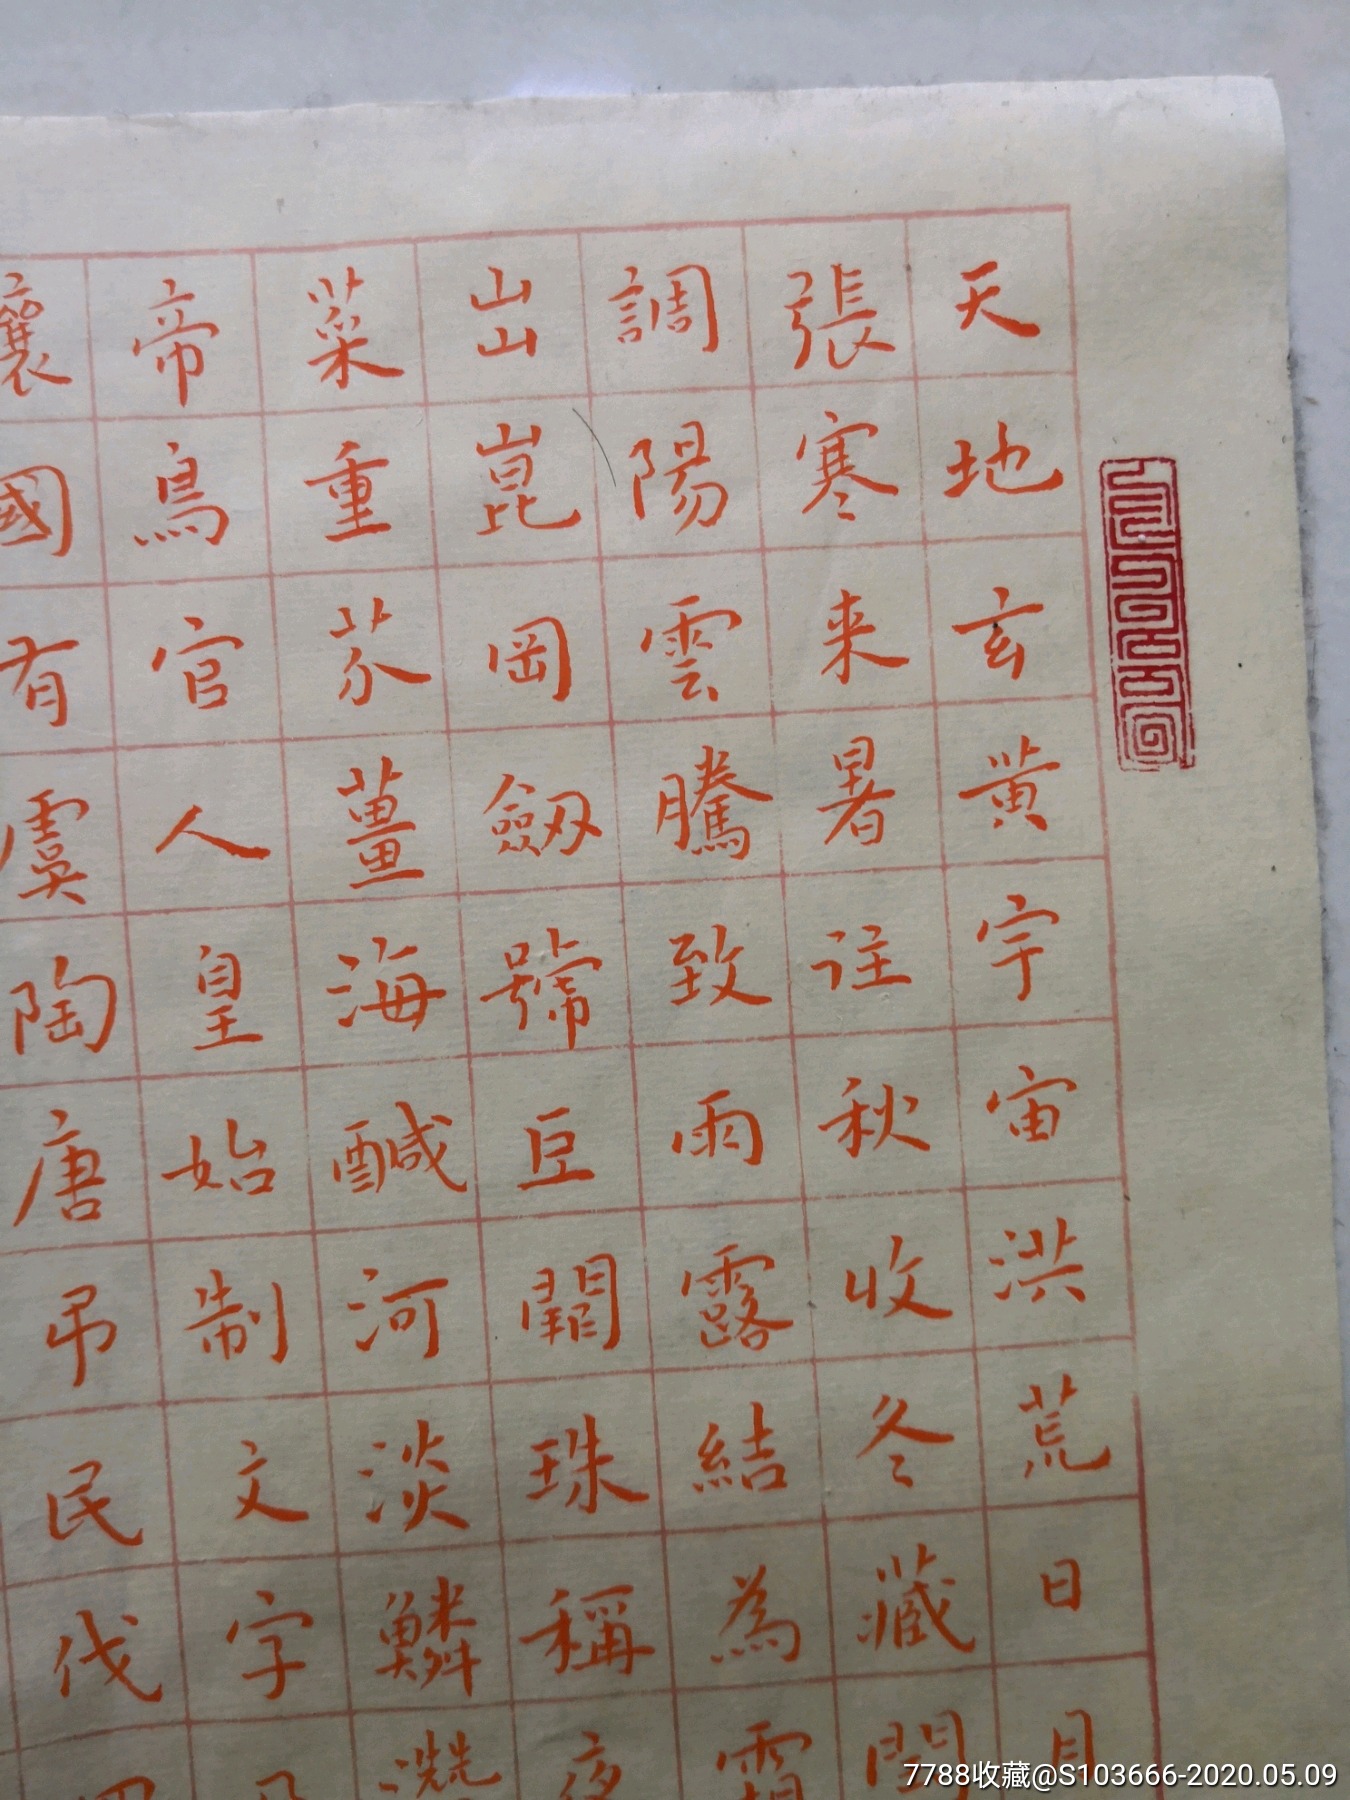 天地玄黄宇宙洪荒日月
張寒来暑往秋收冬藏閏
調陽雲騰致雨露結為霜
出崑岡劔號巨闕珠稱夜
菜重芥薑海鹹河淡鱗潛
帝鳥官人皇始制文字乃
襄國有虞陶唐吊民伐罪
7788收藏@S103666-2020.05.09